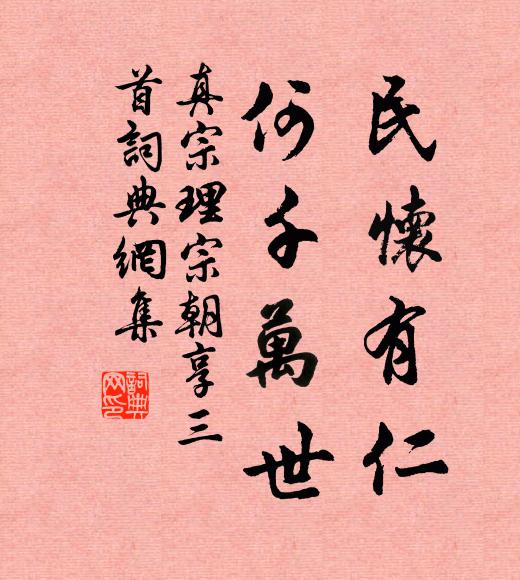 民懷有仁
何千萬世
真宗理宗朝享三
首詞典網集
詞典网印